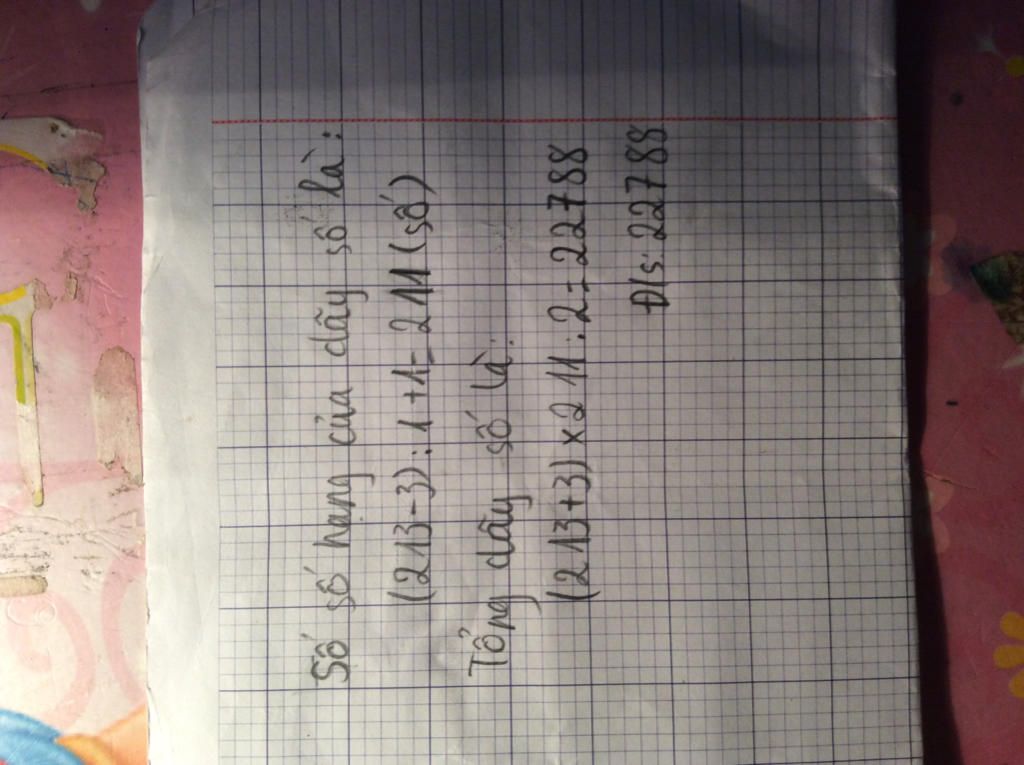 Số số hạng của dãy số là:
(213-3):1+1=211(số)
Tổng dãy số là:
(213+3)x211:2=22788
Đ/s:22788